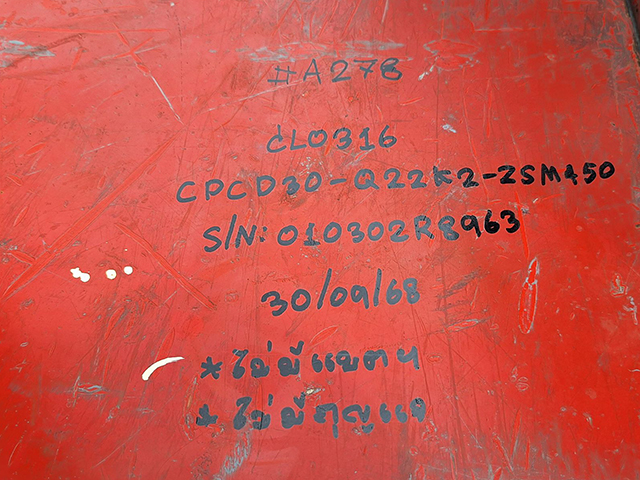 #A278
CL0316
CPCD30-Q22K2-2SM450
S/N: 010302R8963
30/09/68
* ไม่มีแบตฯ
* ไม่มีกุญแจ